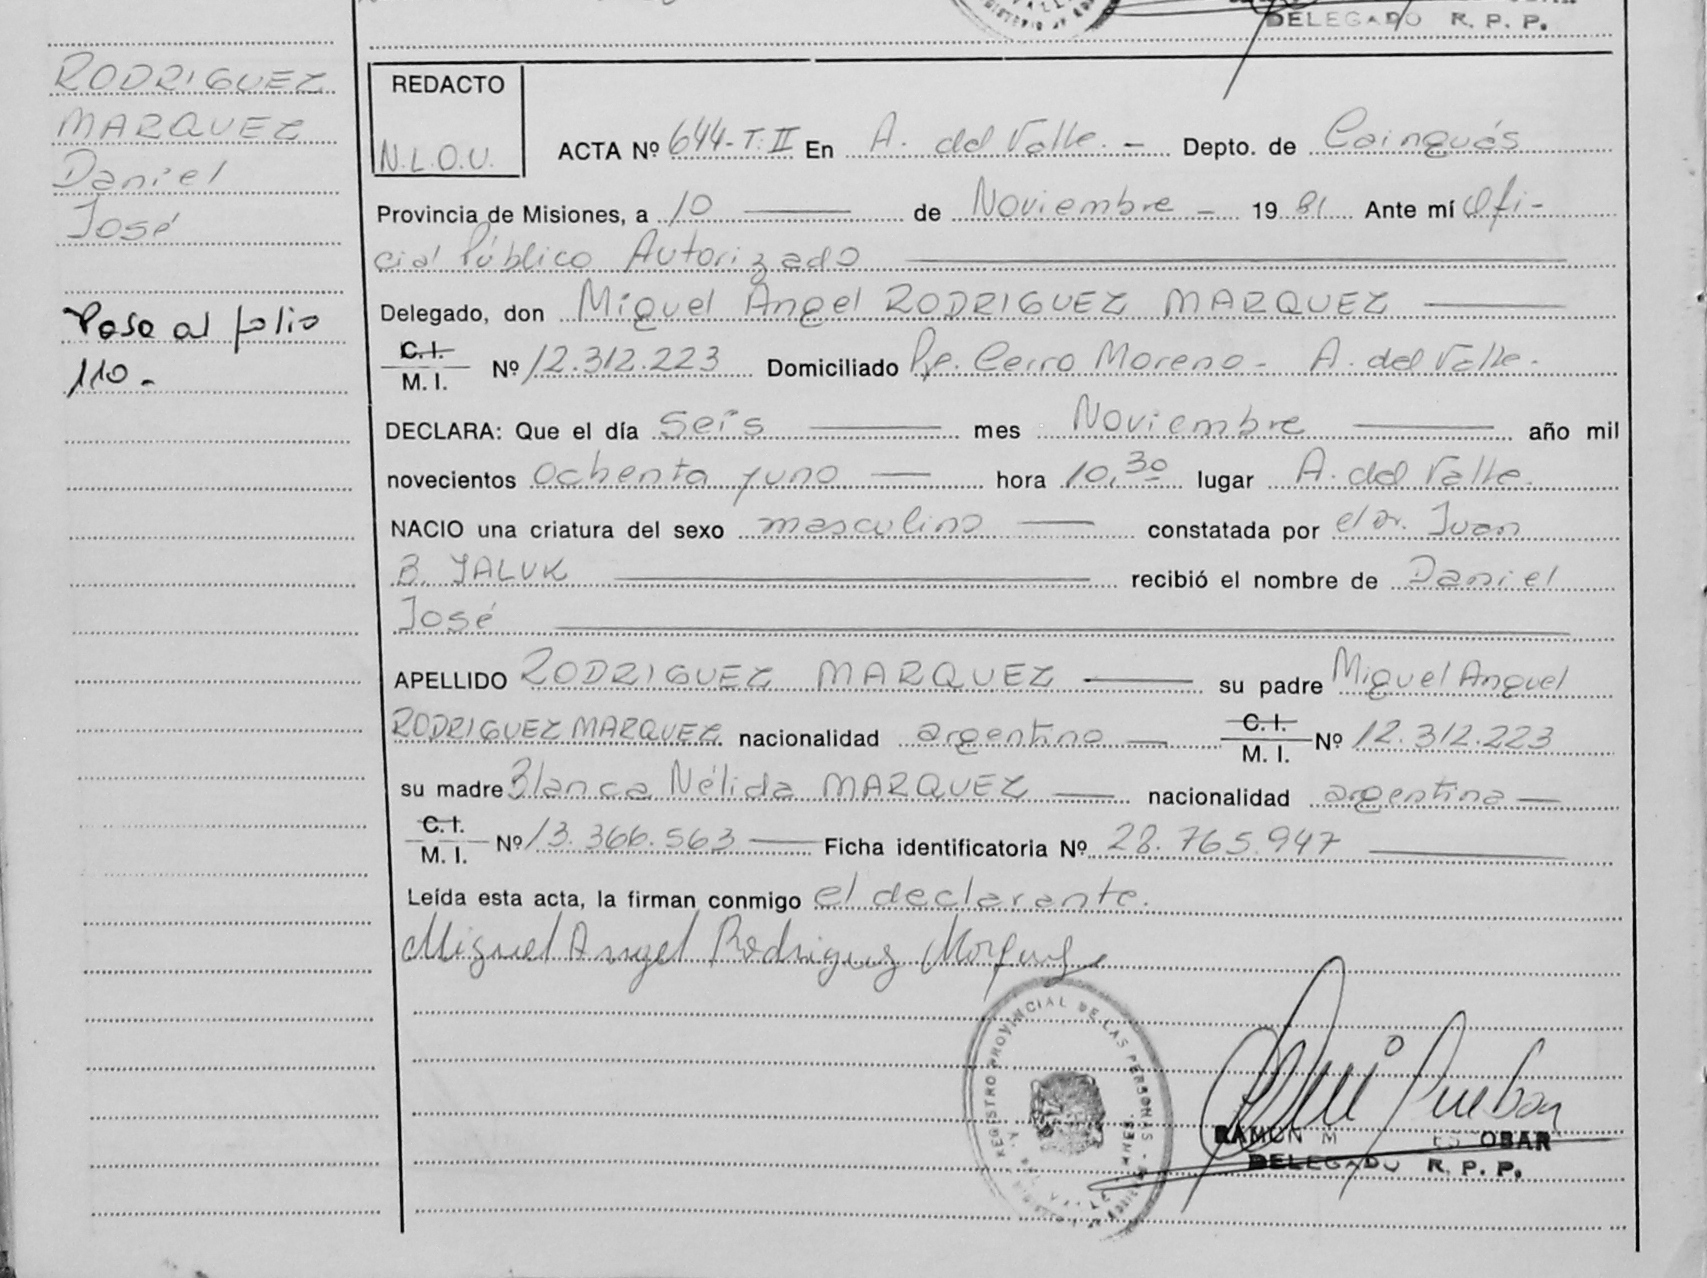 DELEGADO R. P. P.
RODRIGUEZ
MARQUEZ
Daniel
José
Pasa al folio
110.-
REDACTO
N.L.O.U.
ACTA Nº 644-T.II En A. del Valle.- Depto. de Cainguás
Provincia de Misiones, a 10 de Noviembre - 19 81 Ante mí Ofi-
cial Público Autorizado
Delegado, don Miguel Angel RODRIGUEZ MARQUEZ
C.I.
M. I. Nº 12.312.223 Domiciliado Pje. Cerro Moreno - A. del Valle.
DECLARA: Que el día seis mes Noviembre año mil
novecientos ochenta y uno hora 10,30 lugar A. del Valle.
NACIO una criatura del sexo masculino constatada por el Dr. Juan
B. YALUK recibió el nombre de Daniel
José
APELLIDO RODRIGUEZ MARQUEZ su padre Miguel Anguel
RODRIGUEZ MARQUEZ. nacionalidad argentino C.I.
M. I. Nº 12.312.223
su madre Blanca Nélida MARQUEZ nacionalidad argentina
C.I.
M. I. Nº 13.366.563 Ficha identificatoria Nº 28.765.947
Leída esta acta, la firman conmigo el declarante.
Miguel Angel Rodriguez Marquez
REGISTRO PROVINCIAL DE LAS PERSONAS
RAMON M ESCOBAR
DELEGADO R. P. P.